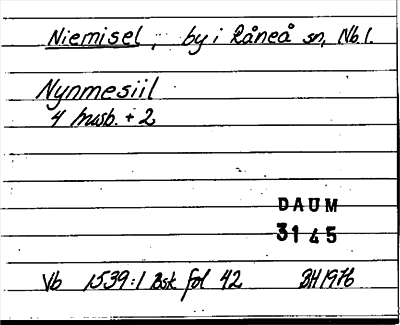 Niemisel, by i Råneå sn, Nb.l.
Nynmesiil
4 husb. + 2
DAUM
3145
Vb 1539:1 Bsk fol 42 BH 1976